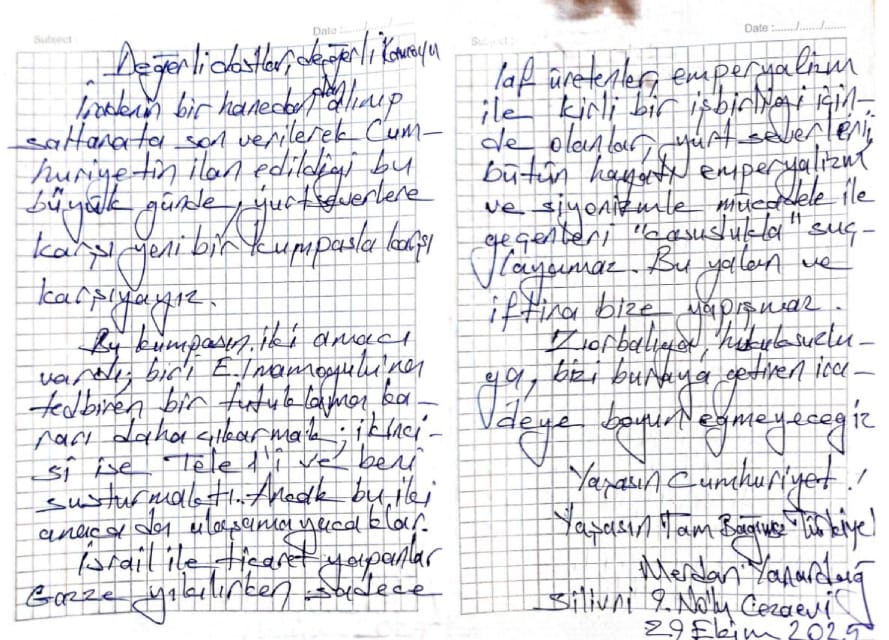 Subject
Date :....../....../......
Değerli dostlar, değerli kamuoyu
İradenin bir hanedandan alınıp
saltanata son verilerek Cum-
huriyetin ilan edildiği bu
büyük günde, yurtseverlere
karşı yeni bir kumpasla karşı
karşıyayız.
Bu kumpasın iki amacı
vardı; biri E. İmamoğulu'na
tedbiren bir tutuklama ka-
rarı daha çıkarmak; ikinci-
si ise Tele 1'i ve beni
susturmaktı. Ancak bu iki
amaca da ulaşamayacaklar.
İsrail ile ticaret yapanlar
Gazze yıkılırken sadece
Subject :
Date :....../....../......
laf üretenler, emperyalizm
ile kirli bir işbirliği için-
de olanlar, yurtseverleri,
bütün hayatı emperyalizm
ve siyonizmle mücadele ile
geçenleri "casuslukla" suç-
layamaz. Bu yalan ve
iftira bize yapışmaz.
Zorbalığa, hukuksuzlu-
ğa, bizi buraya getiren ira-
deye boyun eğmeyeceğiz
Yaşasın Cumhuriyet!
Yaşasın Tam Bağımsız Türkiye!
Merdan Yanardağ
Silivri 9 No'lu Cezaevi
29 Ekim 2025